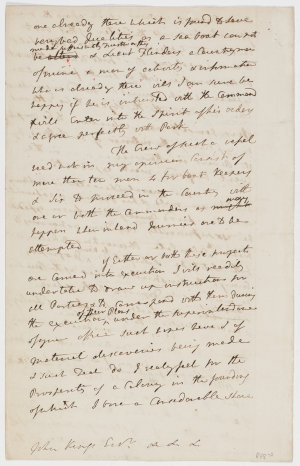 one already there which is found to have
very bad qualities as a sea boat can not
be
& Lieut Flinders a Countryman
of mine a man of activity & information
who is already there will I am sure be
happy if he is intrusted with the Command
& will Enter into the Spirit of his orders
& agree perfectly with Park
The Crew of such a vessel
need not in my opinion Consist of
more than ten men 4 for boat keepers
& Six to proceed in the Country with
one or both the Commanders as may
happen when inland Journies are to be
attempted
if Either or both these projects
are carried into execution I will readily
undertake to draw up instructions for
all Parties & to Correspond with them during
the execution of their Plans under the Superintendence
of your office such sure hopes have I of
material discoveries being made
& such Zeal do I really feel for the
Prosperity of a Colony in the founding
of which I bore a Considerable share
John King Esqr. &c &c &c